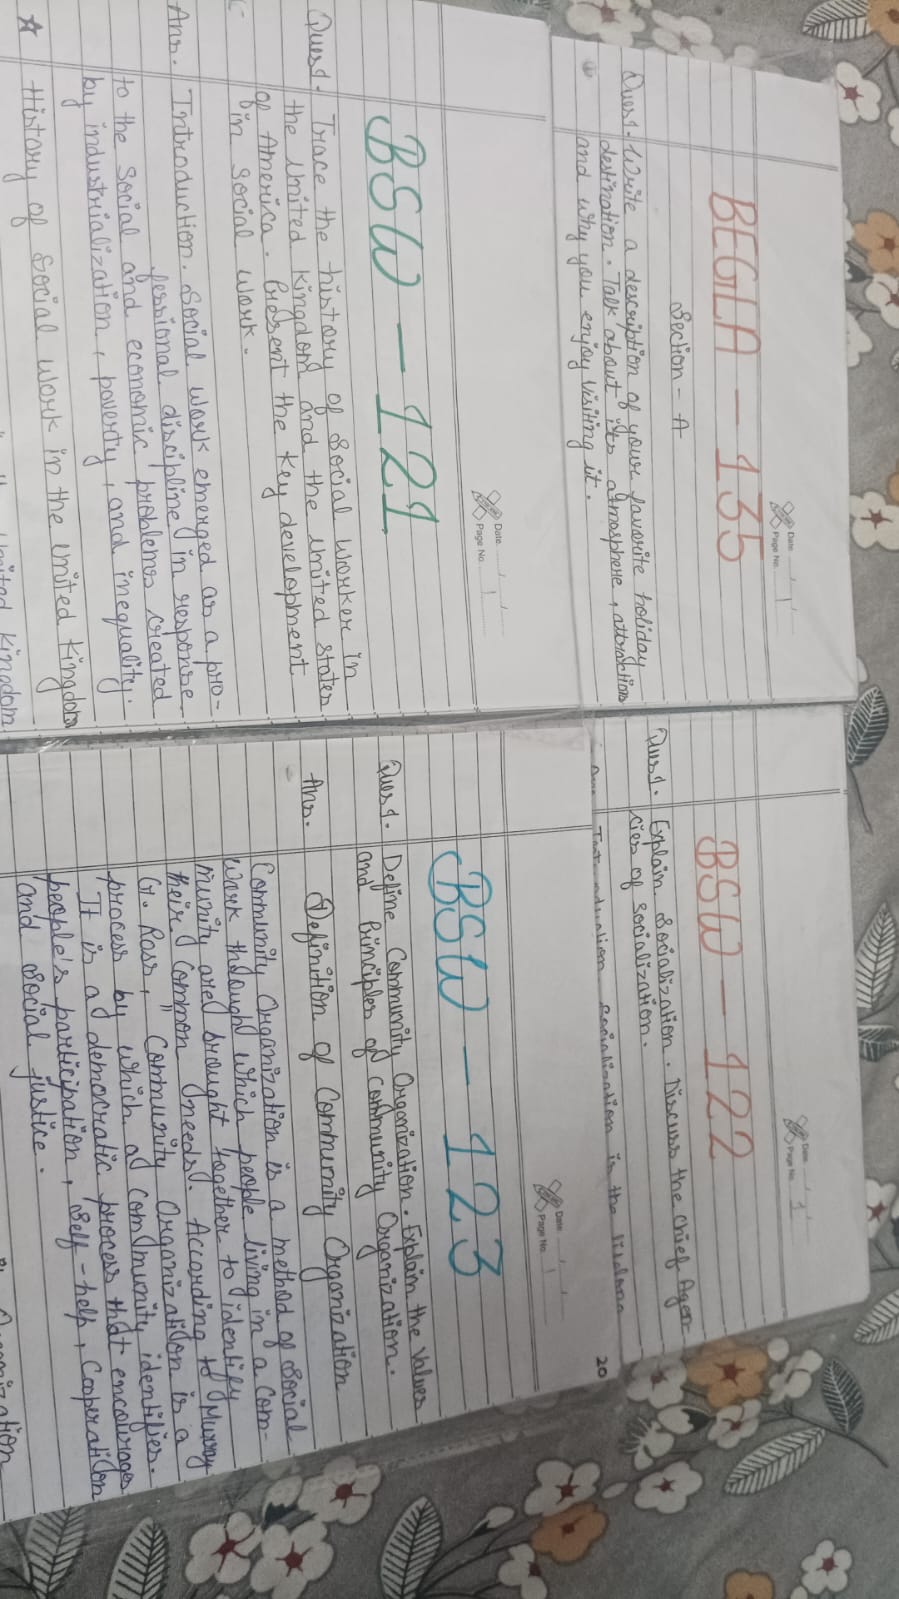 Date
Page No. 1
BEGLA - 135
Section - A
Ques1. Write a description of your favorite holiday
destination. Talk about its atmosphere, attraktions
and why you enjoy visiting it.
Date
Page No. 1
BSW - 122
Ques1. Explain Socialization. Discuss the chief Agen-
cies of socialization.
Introduction Socialization is the lifelong
20
Date
Page No. 1
BSW - 121
Ques1. Trace the history of Social worker in
the united kingdond and the united states
of America. Present the key development
in social work.
Ans. Introduction. Social work emerged as a pro-
fessional discipline in response
to the social and economic problems created
by industrialization, poverty, and inequality.
★ History of Social work in the united kingdom
united kingdom
Date
Page No. 1
BSW - 123
Ques1. Define Community Organization. Explain the values
and Principles of community Organization.
Ans. Definition of Community Organization
Community Organization is a method of Social
work through which people living in a com-
munity are brought together to identify
their common needs. According to Murray
G. Ross, "Community Organization is a
process by which a community identifies.
It is a democratic process that encourages
people's participation, self-help, cooperation
and social justice.